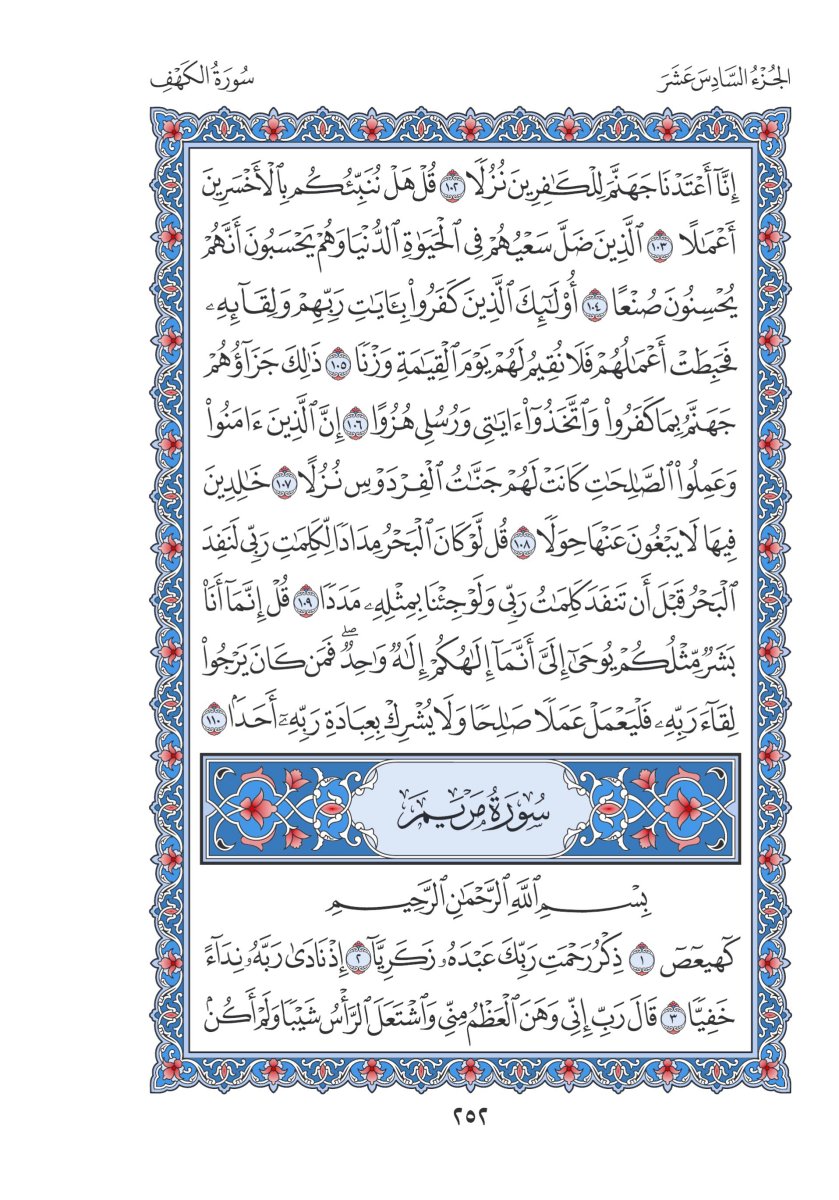 الجُزْءُ السَّادِسَ عَشَرَ
سُورَةُ الكَهْفِ
إِنَّآ أَعْتَدْنَا جَهَنَّمَ لِلْكَٰفِرِينَ نُزُلًا ١٠٢ قُلْ هَلْ نُنَبِّئُكُم بِٱلْأَخْسَرِينَ
أَعْمَٰلًا ١٠٣ ٱلَّذِينَ ضَلَّ سَعْيُهُمْ فِى ٱلْحَيَوٰةِ ٱلدُّنْيَا وَهُمْ يَحْسَبُونَ أَنَّهُمْ
يُحْسِنُونَ صُنْعًا ١٠٤ أُو۟لَٰٓئِكَ ٱلَّذِينَ كَفَرُوا۟ بِـَٔايَٰتِ رَبِّهِمْ وَلِقَآئِهِۦ
فَحَبِطَتْ أَعْمَٰلُهُمْ فَلَا نُقِيمُ لَهُمْ يَوْمَ ٱلْقِيَٰمَةِ وَزْنًا ١٠٥ ذَٰلِكَ جَزَآؤُهُمْ
جَهَنَّمُ بِمَا كَفَرُوا۟ وَٱتَّخَذُوٓا۟ ءَايَٰتِى وَرُسُلِى هُزُوًا ١٠٦ إِنَّ ٱلَّذِينَ ءَامَنُوا۟
وَعَمِلُوا۟ ٱلصَّٰلِحَٰتِ كَانَتْ لَهُمْ جَنَّٰتُ ٱلْفِرْدَوْسِ نُزُلًا ١٠٧ خَٰلِدِينَ
فِيهَا لَا يَبْغُونَ عَنْهَا حِوَلًا ١٠٨ قُل لَّوْ كَانَ ٱلْبَحْرُ مِدَادًا لِّكَلِمَٰتِ رَبِّى لَنَفِدَ
ٱلْبَحْرُ قَبْلَ أَن تَنفَدَ كَلِمَٰتُ رَبِّى وَلَوْ جِئْنَا بِمِثْلِهِۦ مَدَدًا ١٠٩ قُلْ إِنَّمَآ أَنَا۠
بَشَرٌ مِّثْلُكُمْ يُوحَىٰٓ إِلَىَّ أَنَّمَآ إِلَٰهُكُمْ إِلَٰهٌ وَٰحِدٌ ۖ فَمَن كَانَ يَرْجُوا۟
لِقَآءَ رَبِّهِۦ فَلْيَعْمَلْ عَمَلًا صَٰلِحًا وَلَا يُشْرِكْ بِعِبَادَةِ رَبِّهِۦٓ أَحَدًۢا ١١٠
سُورَةُ مَرْيَمَ
بِسْمِ ٱللَّهِ ٱلرَّحْمَٰنِ ٱلرَّحِيمِ
كٓهيعٓصٓ ١ ذِكْرُ رَحْمَتِ رَبِّكَ عَبْدَهُۥ زَكَرِيَّآ ٢ إِذْ نَادَىٰ رَبَّهُۥ نِدَآءً
خَفِيًّا ٣ قَالَ رَبِّ إِنِّى وَهَنَ ٱلْعَظْمُ مِنِّى وَٱشْتَعَلَ ٱلرَّأْسُ شَيْبًا وَلَمْ أَكُنۢ
٢٥٢